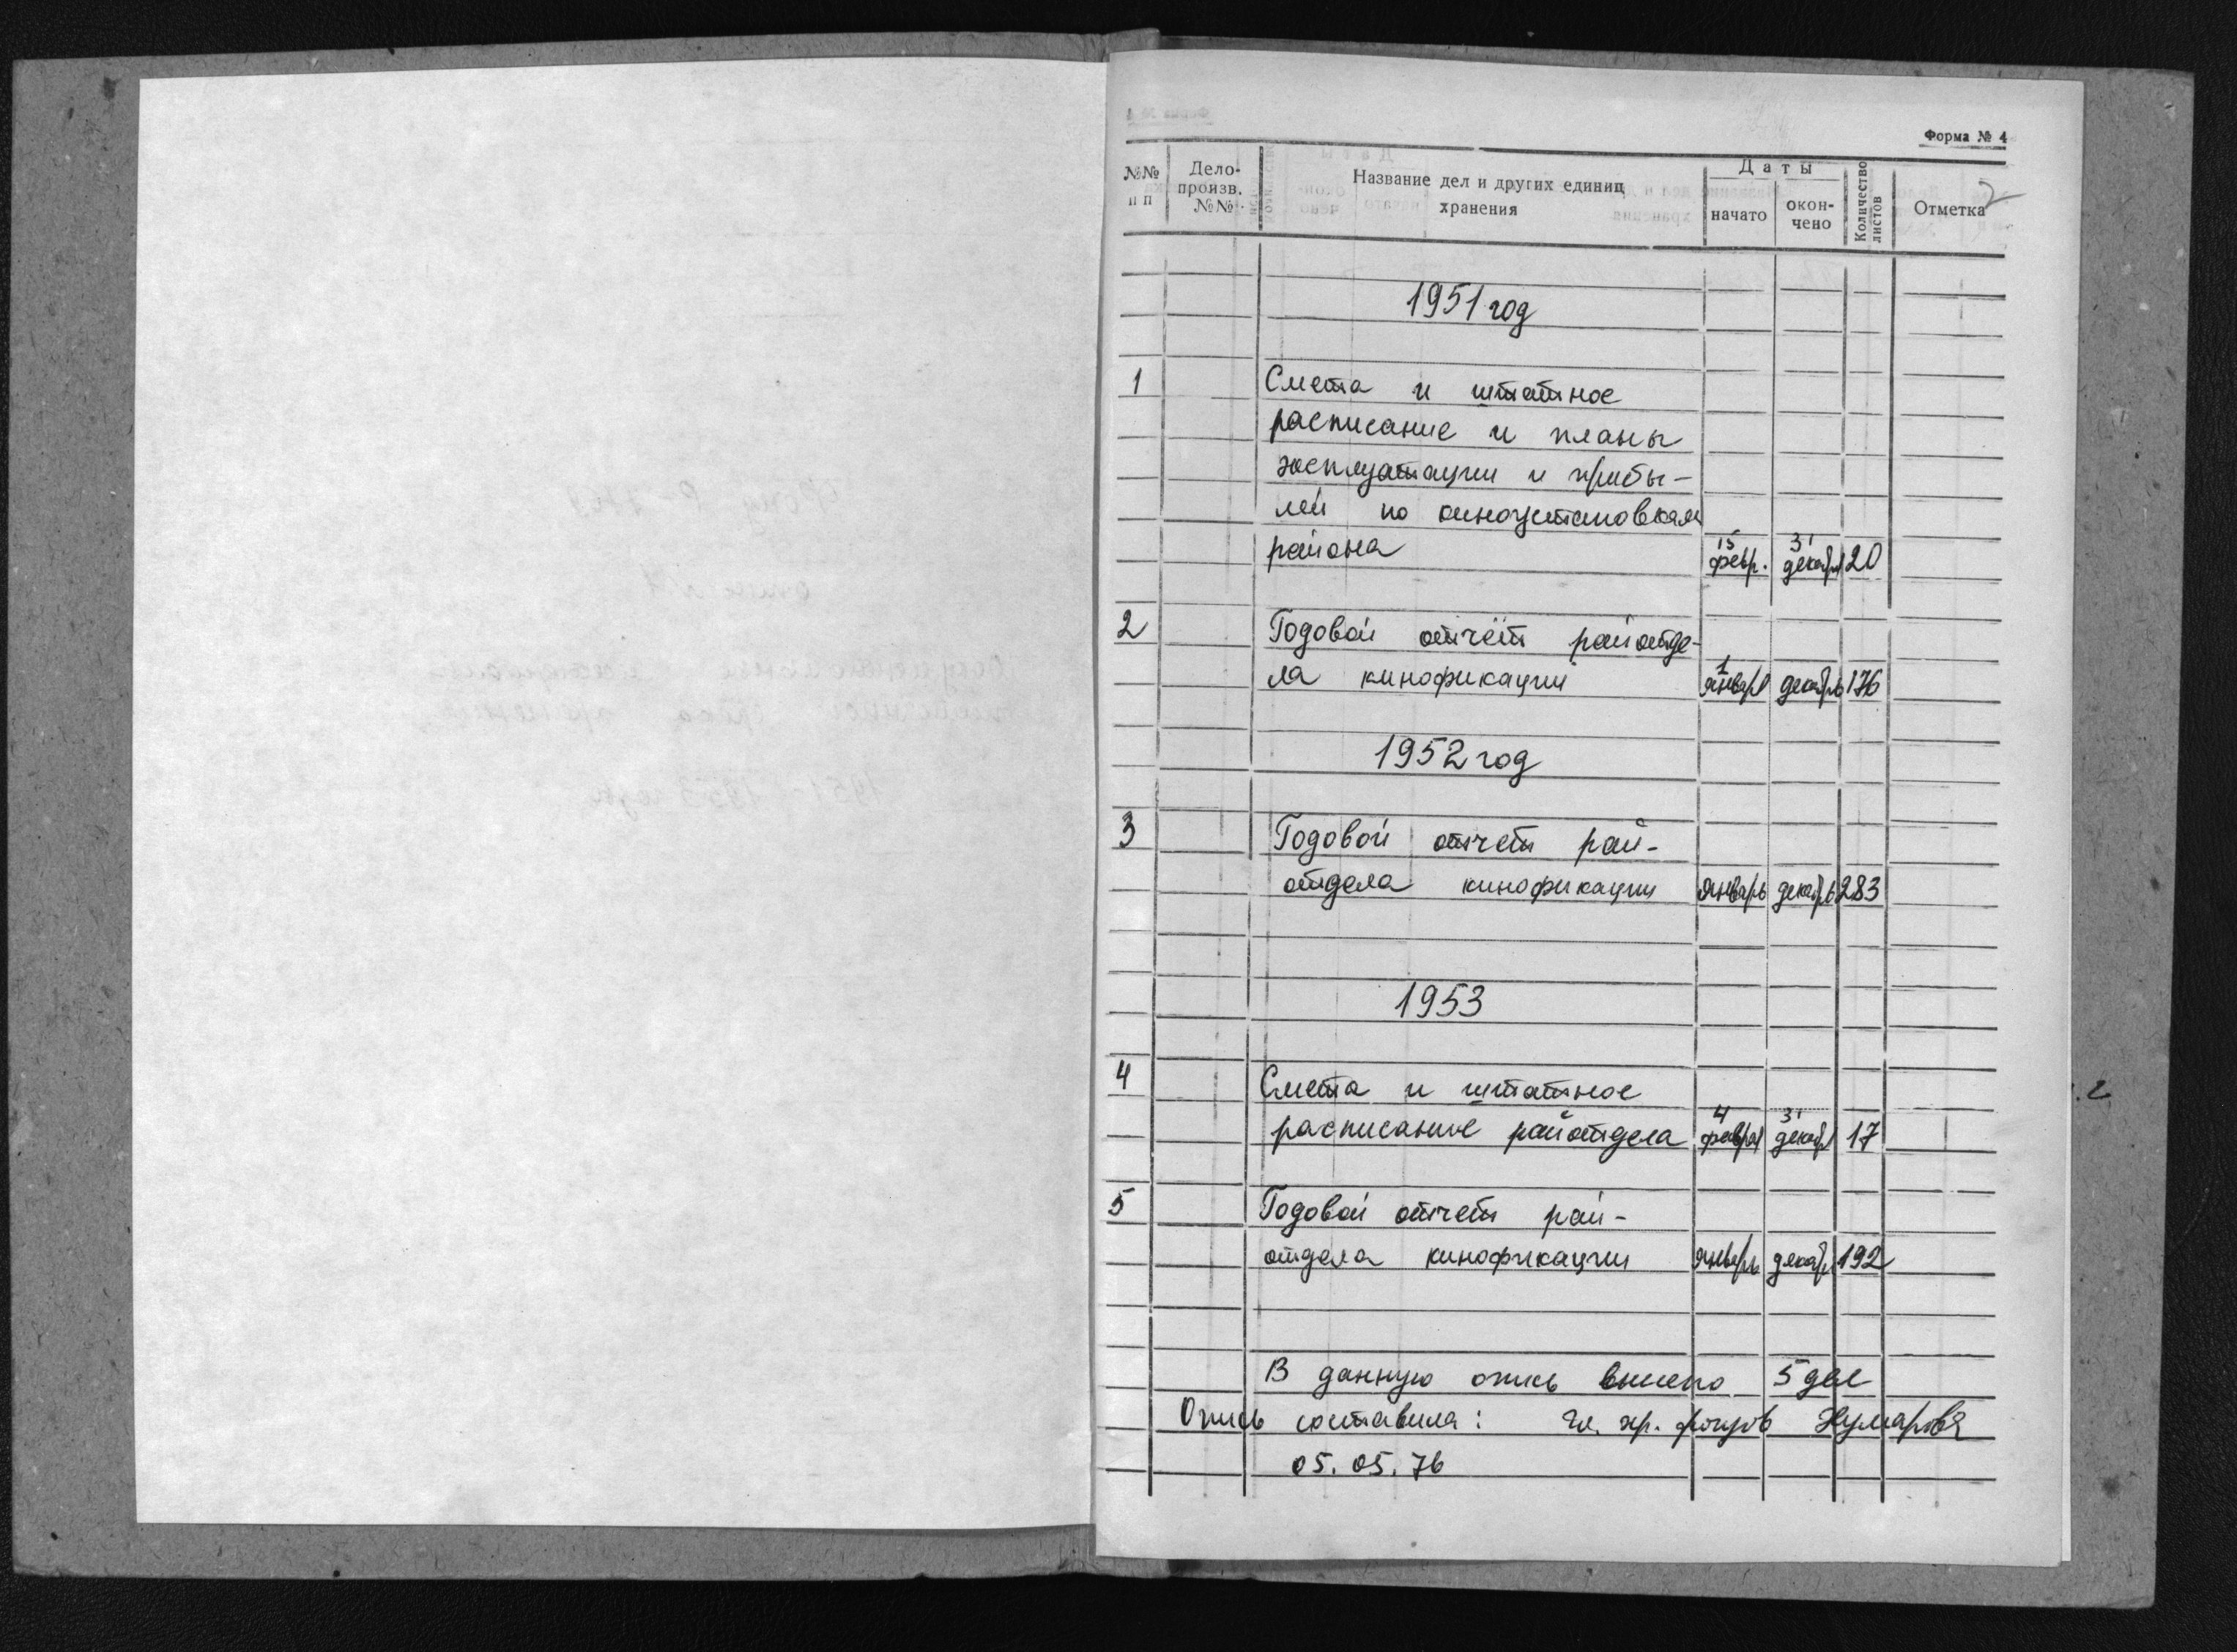 Форма № 4
2
№№ п п
Дело-произв. №№
Название дел и других единиц хранения
Даты
начато
окон-чено
Количество листов
Отметка
1951 год
1 Смета и штатное
расписание и планы
эксплуатации и прибы-
лей по киноустановкам
района 15 февр. 31 декабр 20
2 Годовой отчёт райотде-
ла кинофикации 1 январ декабрь 176
1952 год
3 Годовой отчет рай-
отдела кинофикации январь декабрь 283
1953
4 Смета и штатное
расписание райотдела 4 феврал 31 декабр 17
5 Годовой отчет рай-
отдела кинофикации январь декабр 192
В данную опись внесено 5 дел
Опись составила: гл. хр. фондов
05.05.76